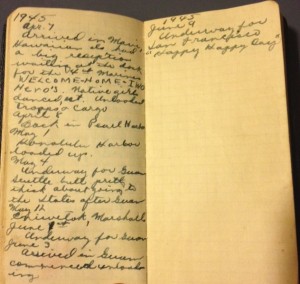 1945
Apr. 7
Arrived in Maui,
Hawaiian Is. had
a big reception
waiting at the dock
for the 4th Marines
WELCOME-HOME-IWO
HERO'S. Native girls
danced, etc. Unloaded
troops & cargo
April 8
Back in Pearl Harbor
May 1
Honolulu Harbor
loaded up.
May 4
Underway for Guam
Scuttle butt
think about going to
the States after Guam
May 12
Eniwetok, Marshalls
June 1st
Underway for Guam
June 3
Arrived in Guam
commenced unload
ing
1945
June 9
Underway for
San Francisco
"Happy Happy Day"